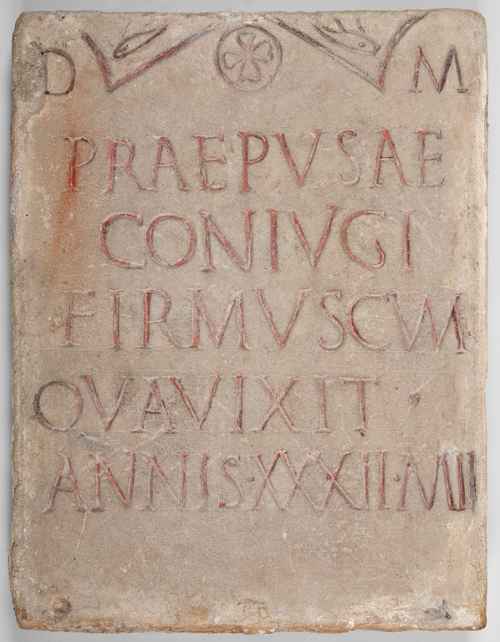 D M
PRAEPVSAE
CONIVGI
FIRMVSCVM
QVAVIXIT
ANNIS·XXXII·MII